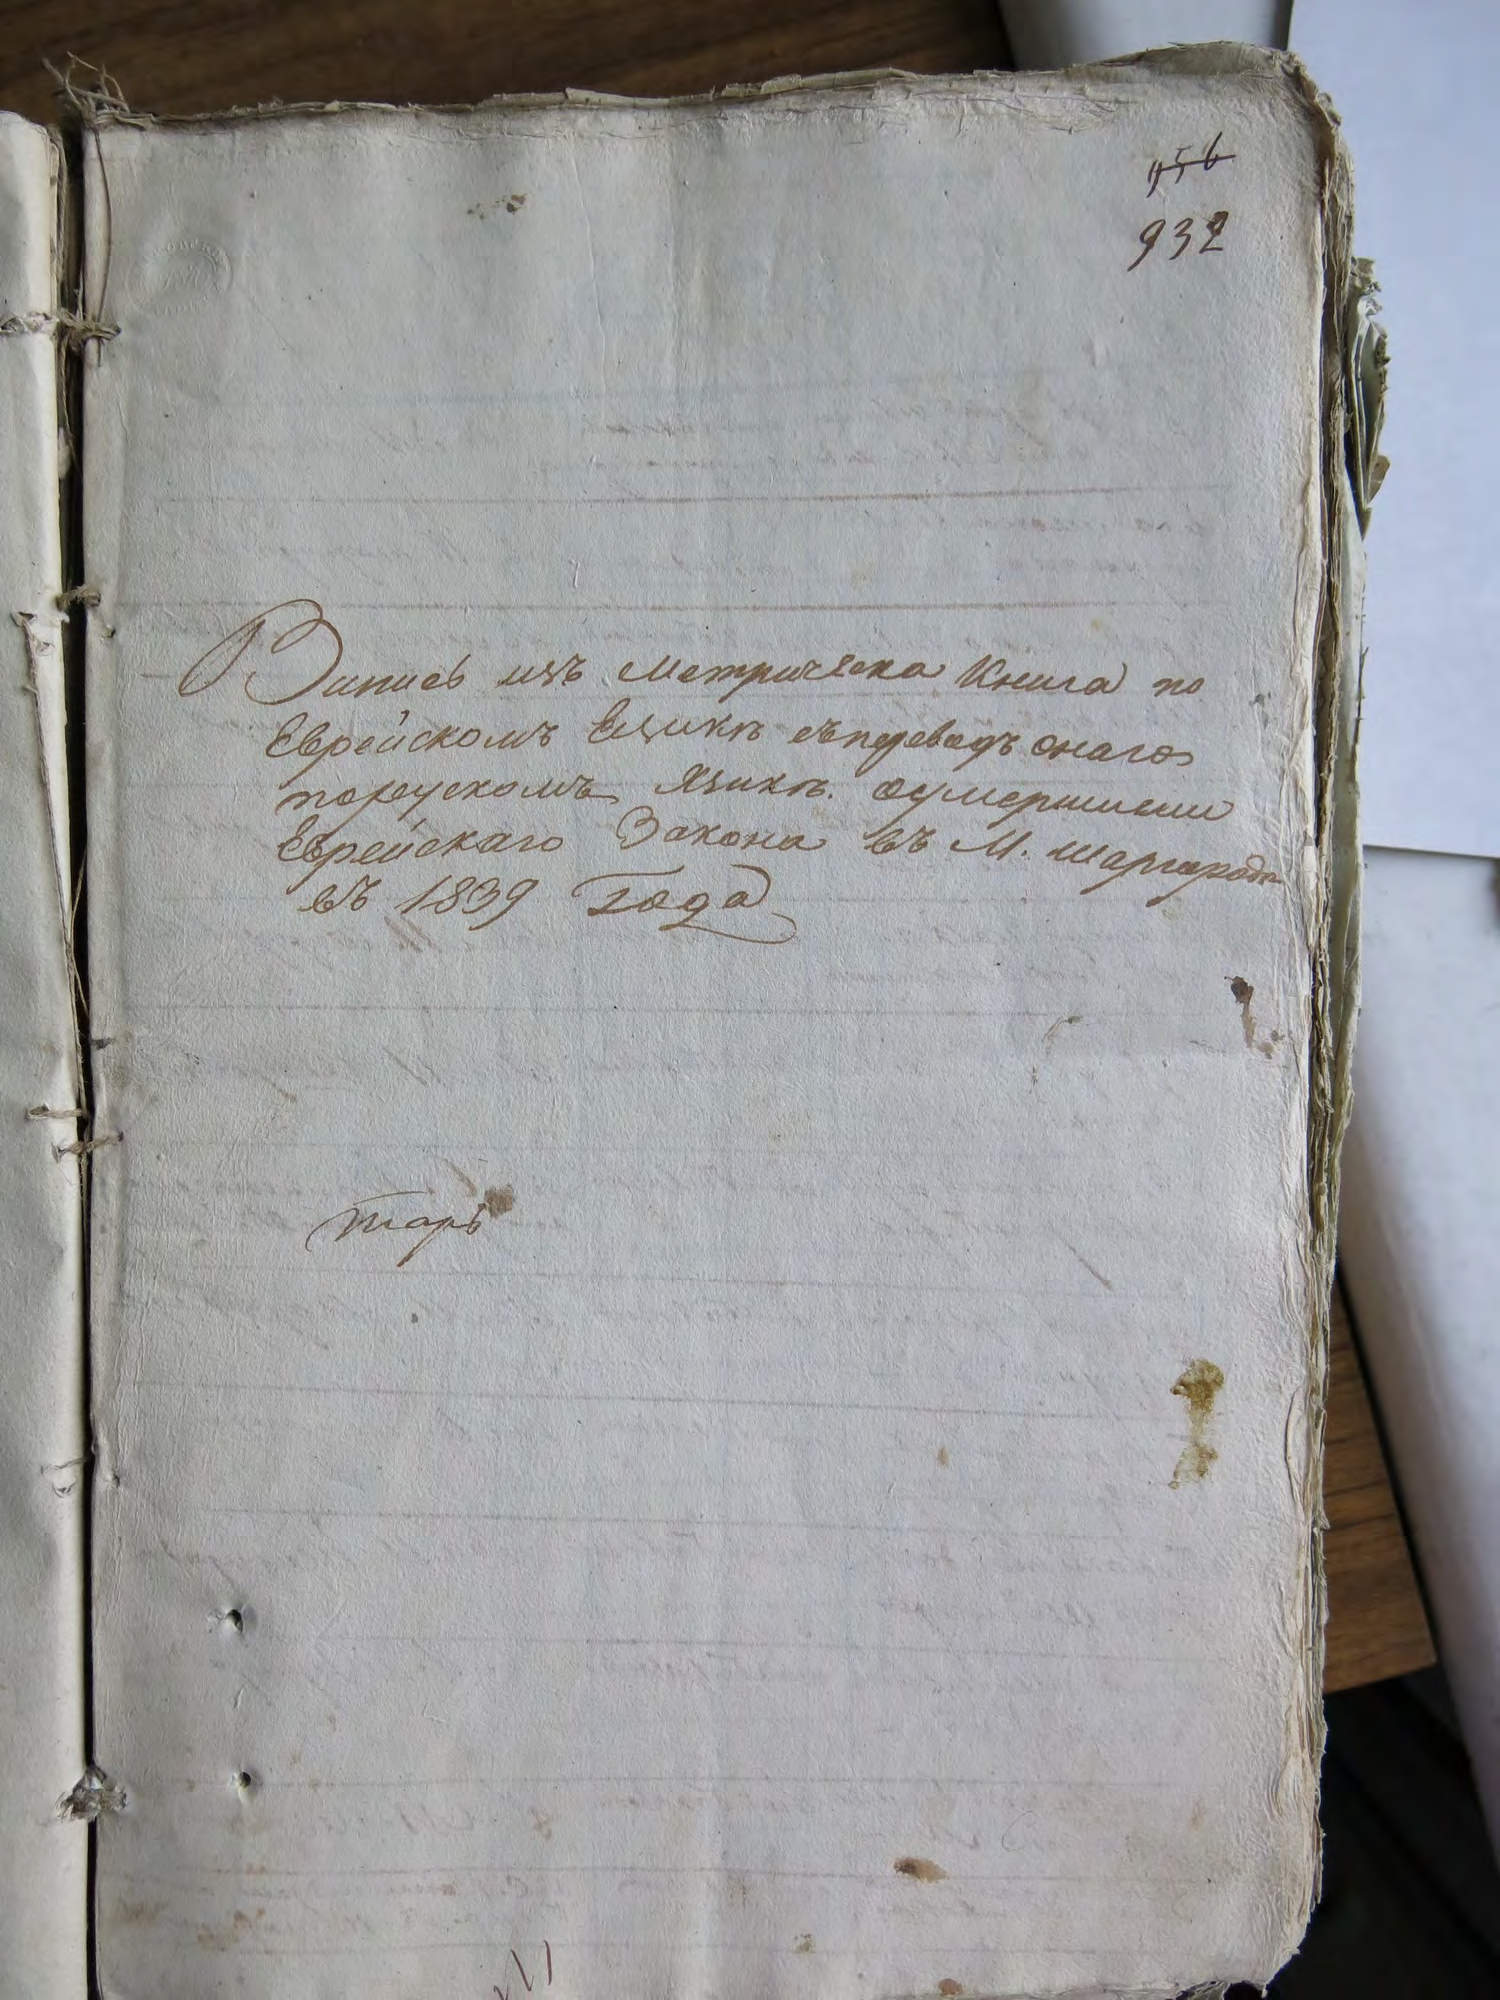 956
932
Запись изъ метрическа Книга по
Еврейскомъ Ещикъ съпереводъ онаго
порускомъ Языкъ. оумершими
Еврейскаго Закона въ М. шаргародъ
въ 1839 Года